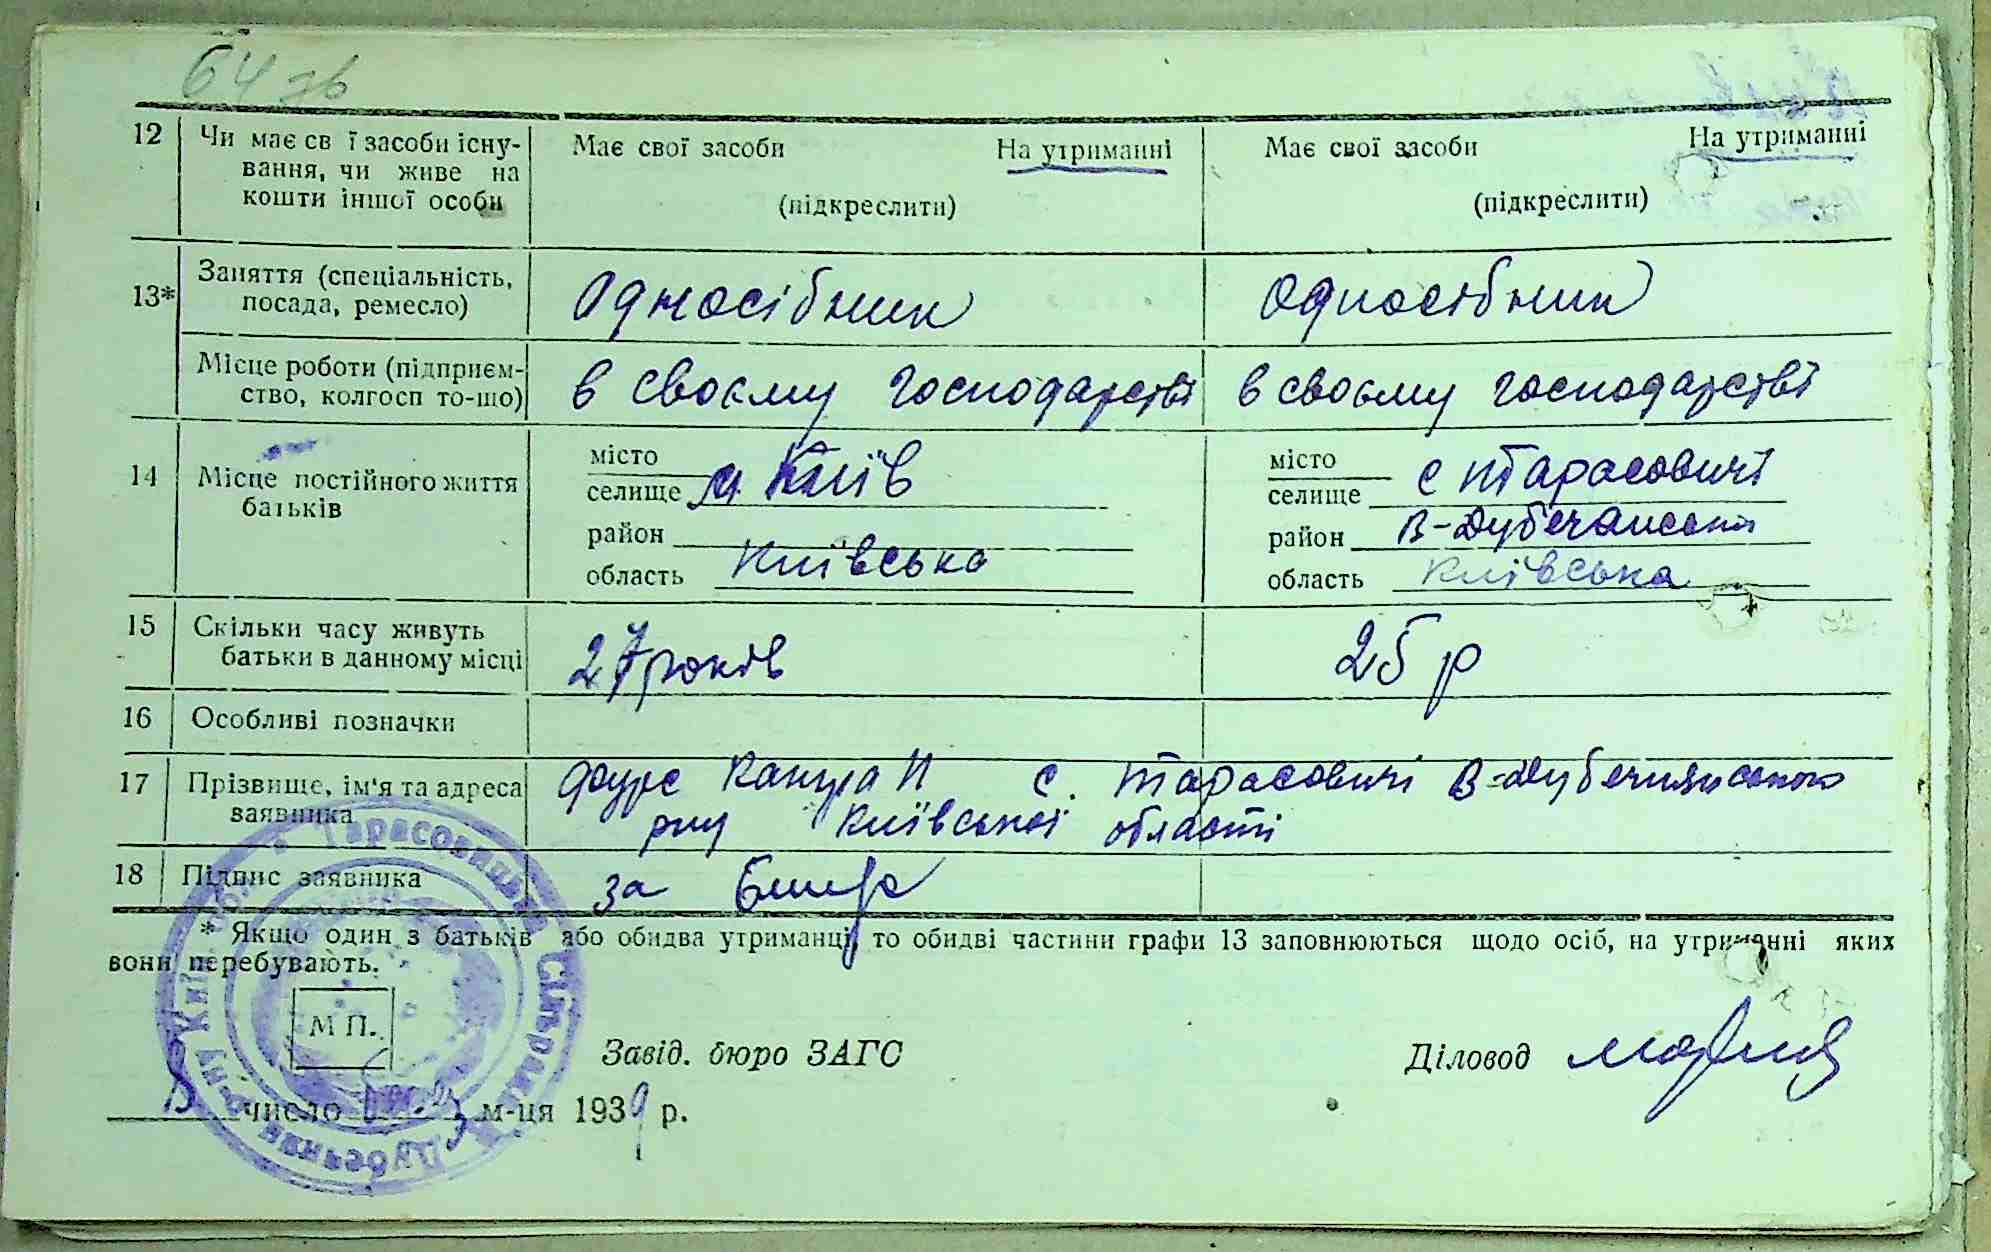 64 зв
12 Чи має св ї засоби існу- Має свої засоби На утриманні Має свої засоби На утриманні
вання, чи живе на
кошти іншої особи (підкреслити) (підкреслити)
13* Заняття (спеціальність, Односібник Односібник
посада, ремесло)
Місце роботи (підприєм- в своєму господарстві в своєму господарстві
ство, колгосп то-що)
14 Місце постійного життя місто м Київ місто с Тарасовичі
батьків селище селище
район район В-Дубечанська
область Київська область Київська
15 Скільки часу живуть 27 років 25 р
батьки в данному місці
16 Особливі позначки
17 Прізвище, ім'я та адреса с. Тарасовичі
заявника рну Київської області
18 Підпис заявника за
* Якщо один з батьків або обидва утриманці, то обидві частини графи 13 заповнюються щодо осіб, на утриманні яких
вони перебувають.
М П.
Завід. бюро ЗАГС Діловод
число м-ця 1939 р.